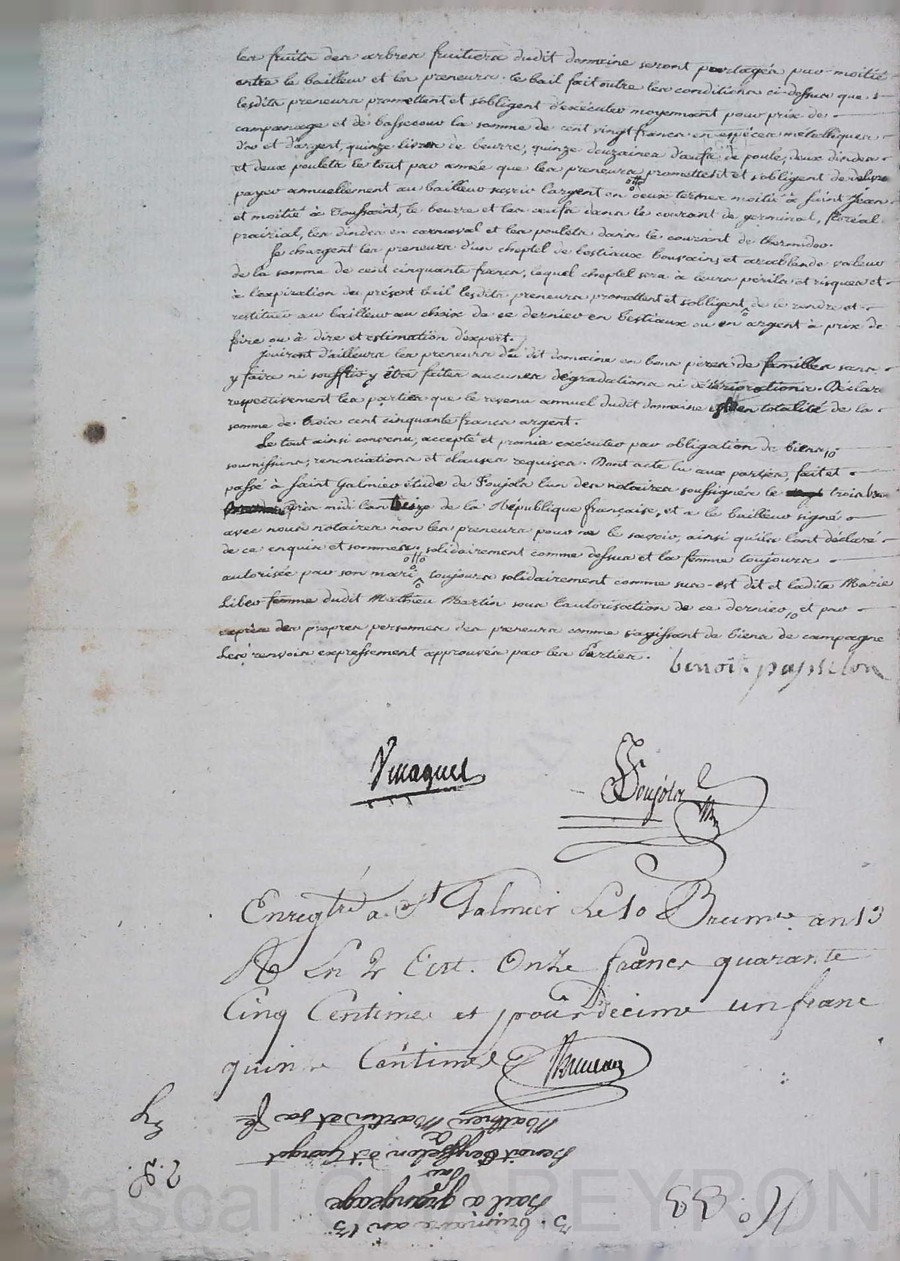 les fruits des arbres fruitiers dudit domaine seront partagés par moitié
entre le bailleur et les preneurs. le bail fait outre les conditions ci-dessus que
lesdits preneurs promettent et s'obligent d'exécuter moyennant pour prix de
campanage et de bassecour la somme de cent vingt francs en espèces métalliques
d'or et d'argent, quinze livres de beurre, quinze douzaines d'œufs de poule, deux dindes
et deux poulets le tout par année que les preneurs promettent et s'obligent de
payer annuellement au bailleur savoir l'argent en deux termes moitié à saint Jean
et moitié à Toussaint, le beurre et les œufs dans le courant de germinal, floréal
prairial, les dindes en carnaval et les poulets dans le courant de thermidor.
Se chargent les preneurs d'un cheptel de bestiaux et valeur
de la somme de cent cinquante francs, lequel cheptel sera à leurs périls et risques et
à l'expiration du présent bail lesdits preneurs promettent et s'obligent de le rendre et
restituer au bailleur au choix de ce dernier en bestiaux ou en argent à prix de
foire ou à dire et estimation d'expert.
Jouiront d'ailleurs les preneurs du dit domaine en bons pères de familles sans
y faire ni souffrir y être faites aucunes dégradations ni détériorations. Déclare
respectivement les parties que le revenu annuel dudit domaine est en totalité de la
somme de trois cent cinquante francs argent.
Le tout ainsi convenu, accepté et promis exécuter par obligation de biens
soumissions, renonciations et clauses requises. Dont acte lu aux parties, fait et
passé à Saint Galmier étude de Poujola l'un des notaires soussignés le trois
après midi l'an treize de la République française, et a le bailleur signé
avec nous notaires non les preneurs pour ne le savoir, ainsi qu'ils l'ont déclaré
de ce enquis et sommés. solidairement comme dessus et la femme toujours
autorisée par son mari toujours solidairement comme sus-est dit et ladite Marie
femme dudit Mathieu Martin sous l'autorisation de ce dernier, et par
exprès des propres personnes des preneurs comme s'agissant de biens de campagne
Les renvois expressément approuvés par les Parties. benoit peysselon
Poujola
Enregtré a St Galmier le 10 Brumre an 13
Onze francs quarante
Cinq Centimes et pour decime un franc
quinze Centimes
No. 33
3. brumaire an 13
bail a grangeage
par
Benoit Peysselon dit
a
Mathieu Martin et sa fe